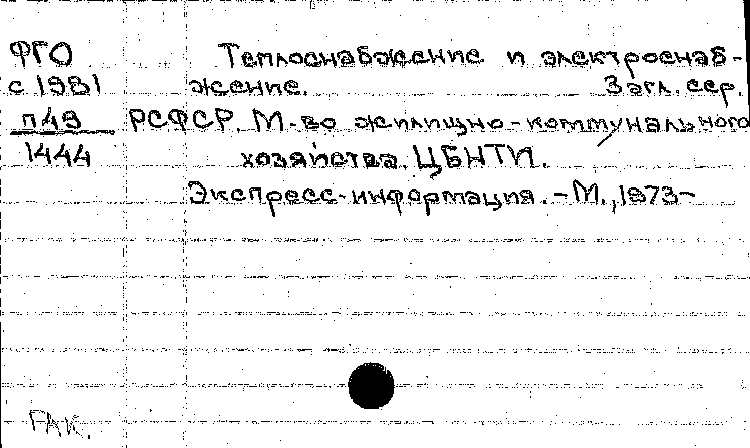 ФГО Теплоснабжение и электроснаб-
с 1981 жение. Загл. сер.
П49 РСФСР. М-во жилищно-коммунального
1444 хозяйства. ЦБНТИ.
Экспресс-информация. - М., 1973-
ГАК.